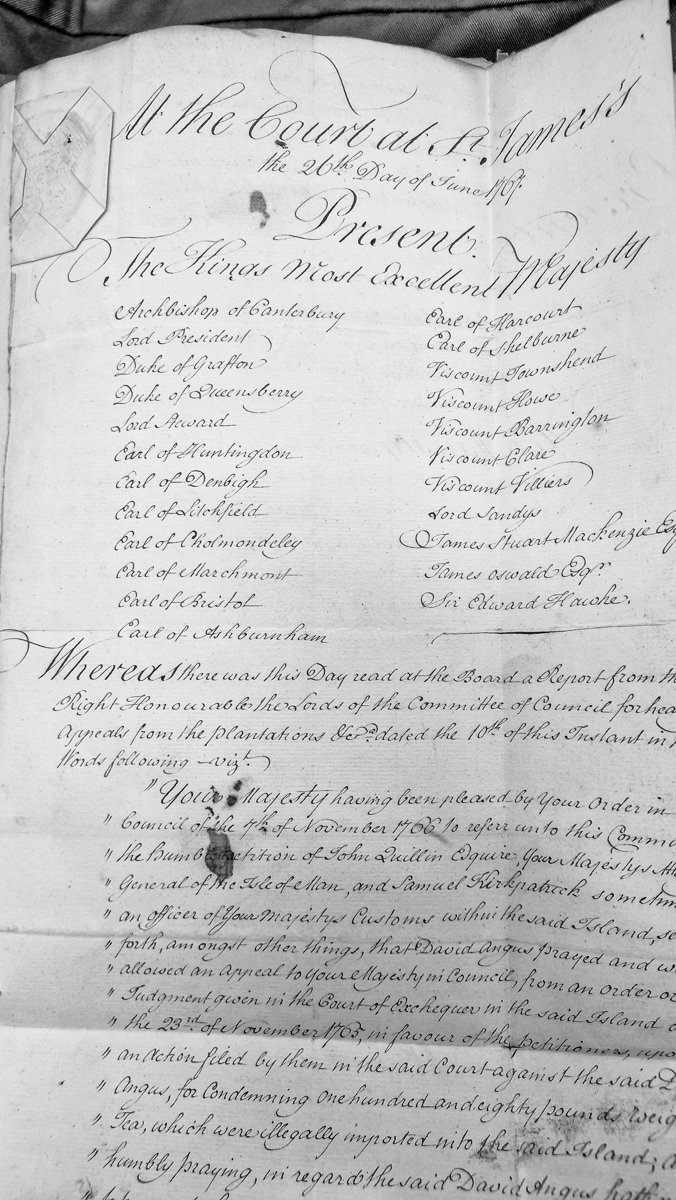 At the Court at St. James's
the 26th. Day of June 1767.
Present.
The Kings Most Excellent Majesty
Archbishop of Canterbury
Lord President
Duke of Grafton
Duke of Queensberry
Lord Steward
Earl of Huntingdon
Earl of Denbigh
Earl of Litchfield
Earl of Cholmondeley
Earl of Marchmont
Earl of Bristol
Earl of Ashburnham
Earl of Harcourt
Earl of Shelburne
Viscount Townshend
Viscount Howe
Viscount Barrington
Viscount Clare
Viscount Villiers
Lord Sandys
James Stuart Mackenzie Esq
James Oswald Esqr.
Sir Edward Hawke.
Whereas there was this Day read at the Board a Report from th
Right Honourable the Lords of the Committee of Council for hea
Appeals from the plantations &ca. dated the 10th. of this Instant in
Words following - vizt.
" Your Majesty having been pleased by Your Order in
" Council of the 7th. of November 1766 to referr unto this Commi
" the humble petition of John Quillin Esquire, Your Majestys Att
" General of the Isle of Man, and Samuel Kirkpatrick sometim
" an officer of Your Majestys Customs within the said Island, se
" forth, amongst other things, that David Angus prayed and w
" allowed an Appeal to Your Majesty in Council, from an Order or
" Judgment given in the Court of Exchequer in the said Island o
" the 23rd. of November 1765, in favour of the petitioners, upo
" an Action filed by them in the said Court against the said D
" Angus, for Condemning one hundred and eighty pounds weig
" Tea, which were illegally imported into the said Island; a
" humbly praying, in regard the said David Angus hath